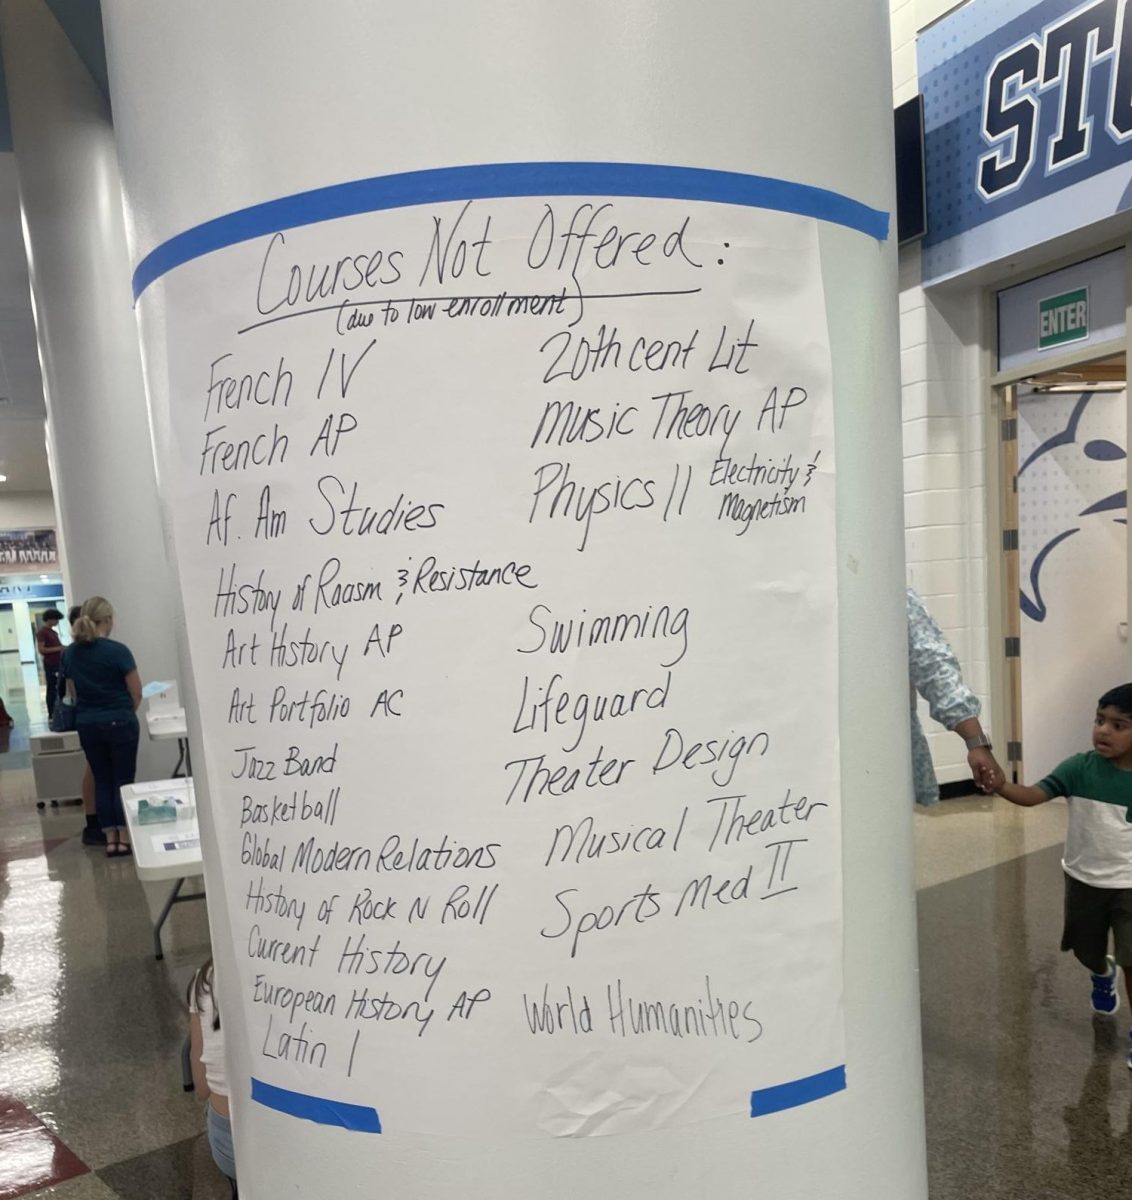 Courses Not Offered:
(due to low enrollment)
French IV
French AP
Af. Am Studies
History of Racism & Resistance
Art History AP
Art Portfolio AC
Jazz Band
Basketball
Global Modern Relations
History of Rock N Roll
Current History
European History AP
Latin I
20th cent Lit
Music Theory AP
Physics II Electricity &
Magnetism
Swimming
Lifeguard
Theater Design
Musical Theater
Sports Med II
World Humanities
ENTER